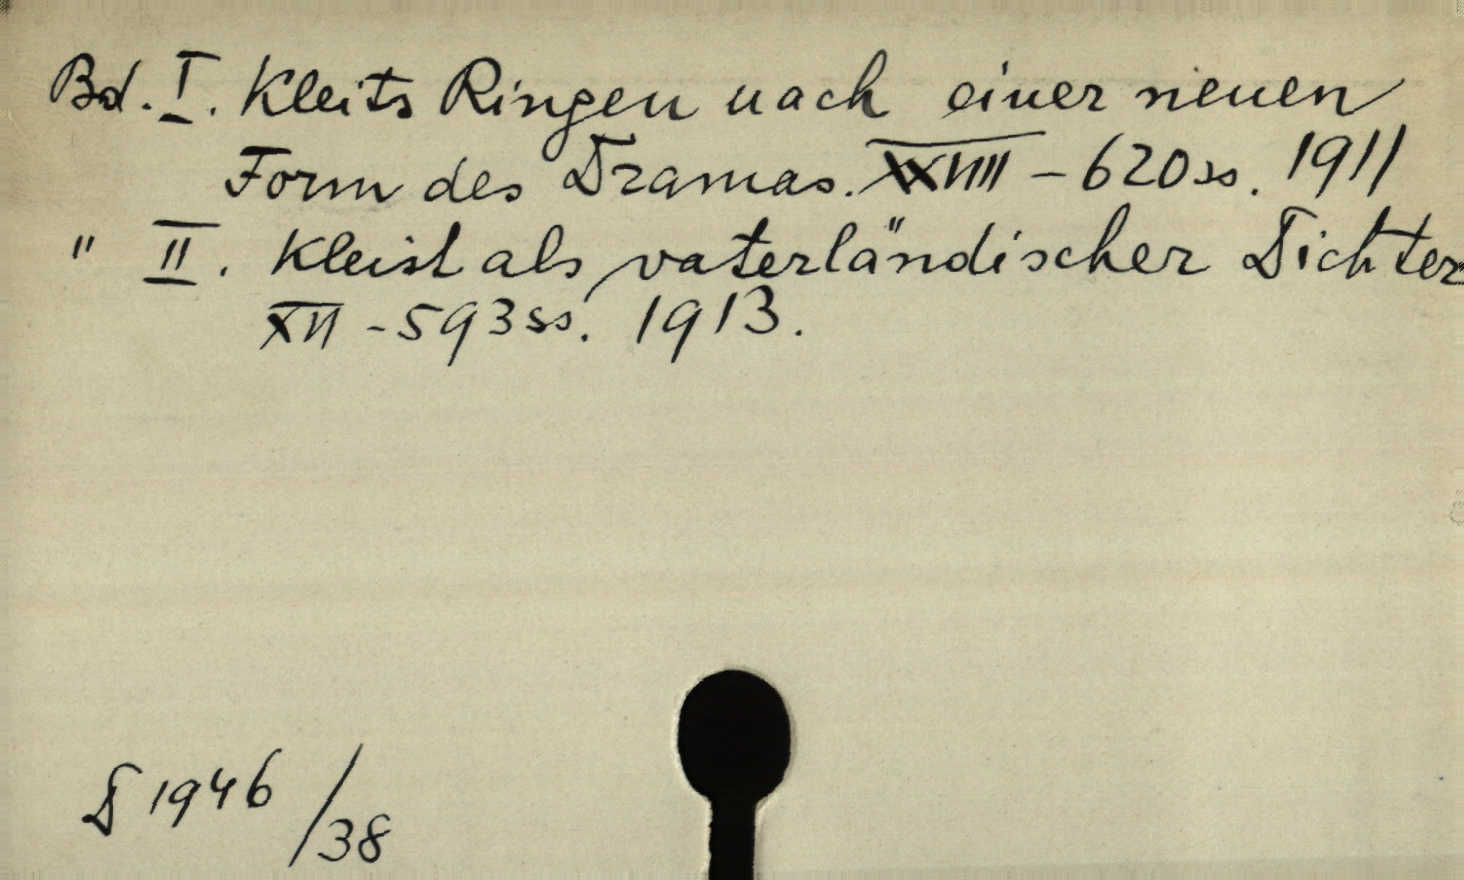 Bd. I. Kleits Ringen nach einer neuen
Form des Dramas. XXVIII - 620 ss. 1911
" II. Kleist als vaterländischer Dichter
XII - 593 ss. 1913.
D 1946/38